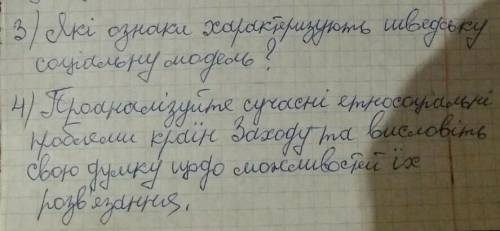 3) Які ознаки характеризують шведську
соціальну модель?
4) Проаналізуйте сучасні етносоціальні
проблеми країн Заходу та висловіть
свою думку щодо можливостей їх
розв'язання.